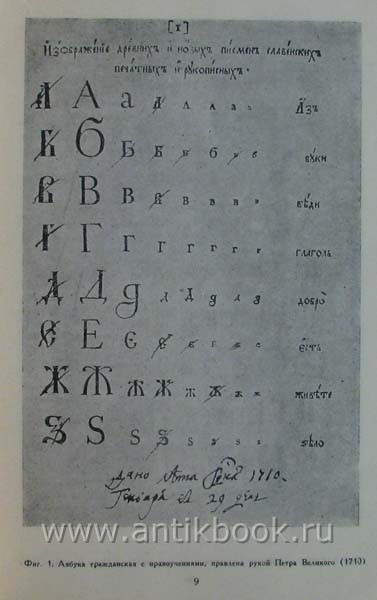 [1]
Изображенїе древнихъ и новыхъ писменъ славенскихъ
печатныхъ и рукописныхъ.
А А а А А А а а Азъ
Б Б Б Б Б б в в буки
В В В В В В в в вѣди
Г Г Г Г Г Г г г глаголь
Д Д д д Д д д д добро
Е Е Є є е е е е єсть
Ж Ж ж ж ж ж ж ж живѣте
Ѕ Ѕ ѕ Ѕ ѕ ѕ ѕ ѕ ѕѣло
дано лѣта 1710.
Генваря 29 дня
www.antikbook.ru
Фиг. 1. Азбука гражданская с нравоучениями, правлена рукой Петра Великого (1710)
9